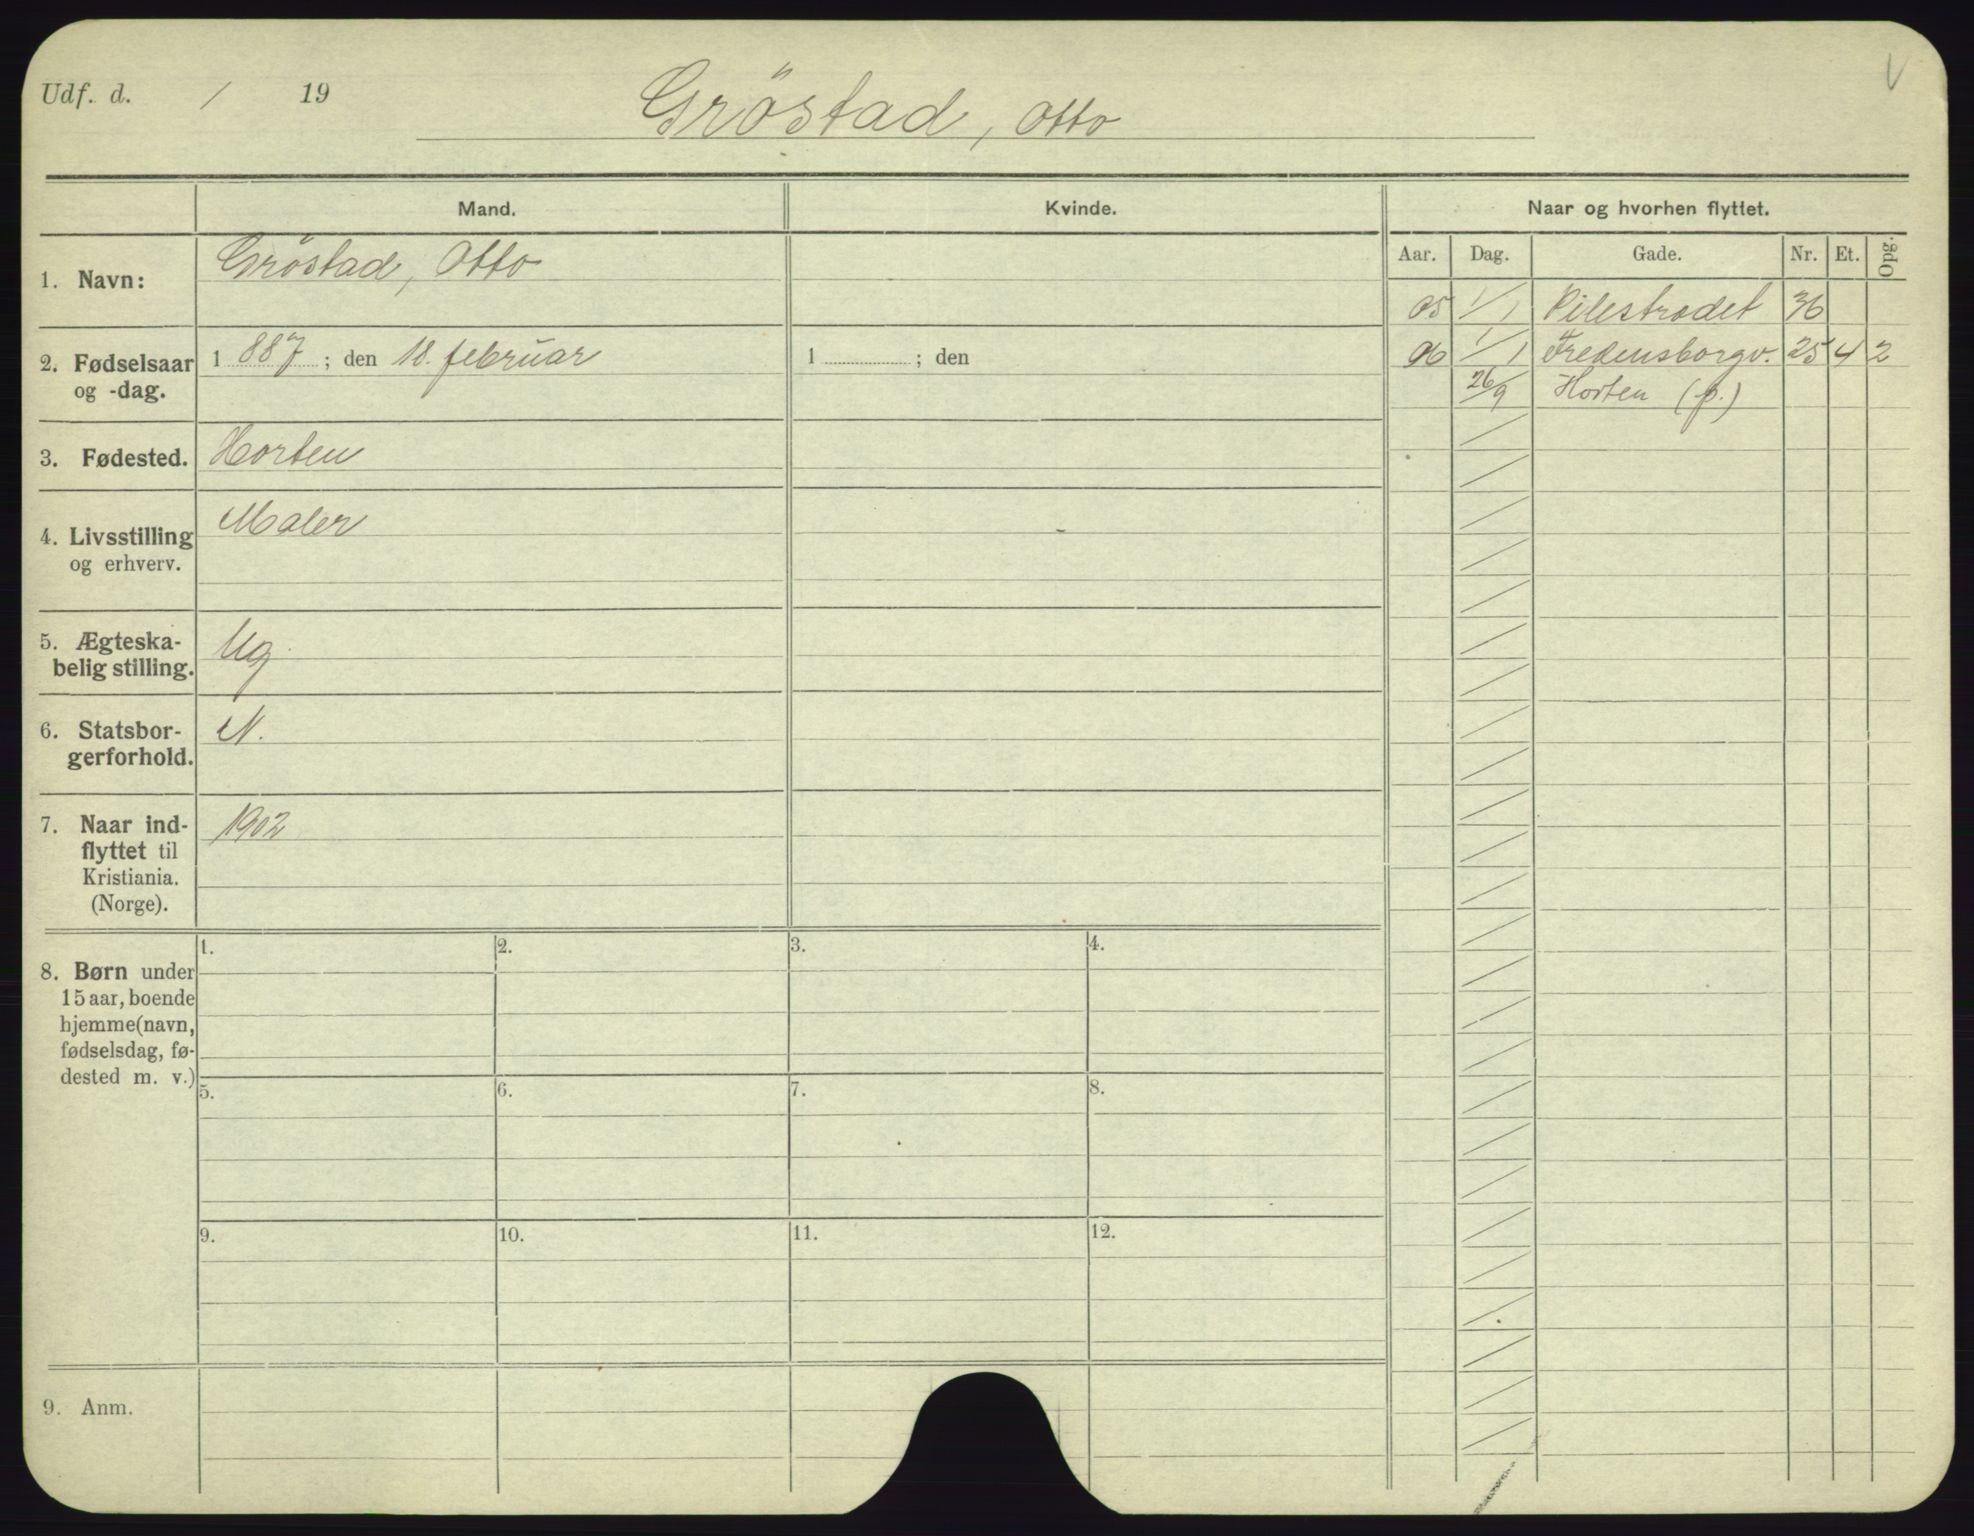 Udf. d. / 19
Gröstad, Otto
V
Mand.
Kvinde.
Naar og hvorhen flyttet.
Aar. Dag. Gade. Nr. Et. Opg.
1. Navn:
Gröstad, Otto
05 1/1 Pilestrædet 36
2. Fødselsaar
og -dag.
1 887 ; den 18. februar
1 ; den
06 1/1 Fredensborgv. 25 4 2
26/9 Horten (p.)
3. Fødested.
Horten
4. Livsstilling
og erhverv.
Maler
5. Ægteska-
belig stilling.
Ug
6. Statsbor-
gerforhold.
N.
7. Naar ind-
flyttet til
Kristiania.
(Norge).
1902
8. Børn under
15 aar, boende
hjemme (navn,
fødselsdag, fø-
dested m. v.)
1. 2. 3. 4.
5. 6. 7. 8.
9. 10. 11. 12.
9. Anm.